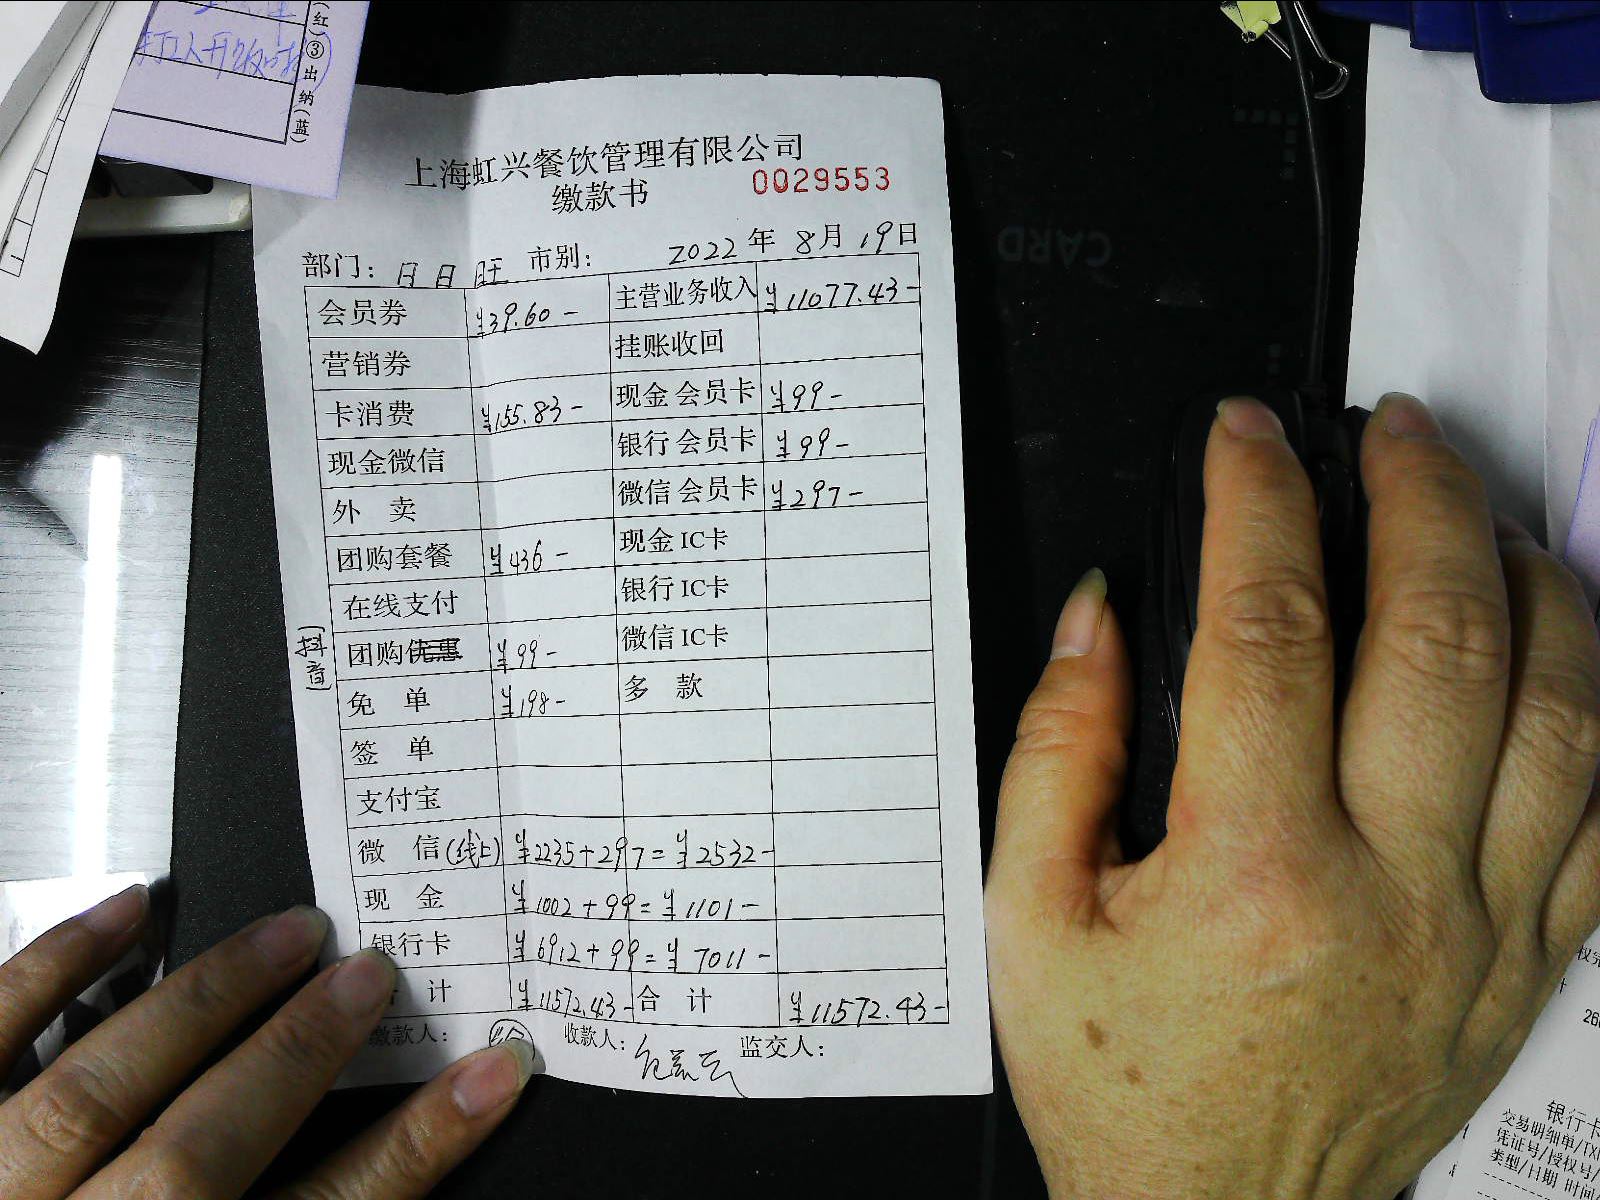 (红)③出纳(蓝)
上海虹兴餐饮管理有限公司
缴款书 0029553
部门: 日日旺 市别: 2022年8月19日
会员券 ¥39.60- 主营业务收入 ¥11077.43-
营销券 挂账收回
卡消费 ¥155.83- 现金会员卡 ¥99-
现金微信 银行会员卡 ¥99-
外 卖 微信会员卡 ¥297-
团购套餐 ¥436- 现金IC卡
在线支付 银行IC卡
(抖音) 团购优惠 ¥99- 微信IC卡
免 单 ¥198- 多 款
签 单
支付宝
微 信(线上) ¥2235+297=¥2532-
现 金 ¥1002+99=¥1101-
银行卡 ¥6912+99=¥7011-
计 ¥11572.43- 合 计 ¥11572.43-
缴款人: 收款人: 监交人:
CARD
银行卡
交易明细单/TX
凭证号/授权号/
类型/日期 时间